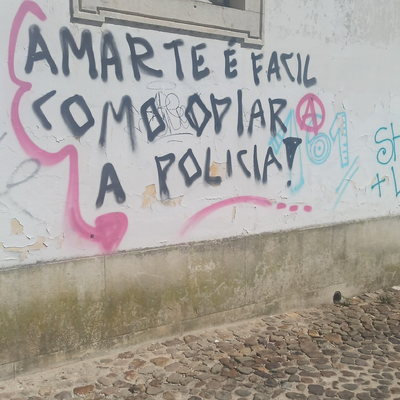 AMARTE É FACIL
COMO ODIAR
A POLICIA!